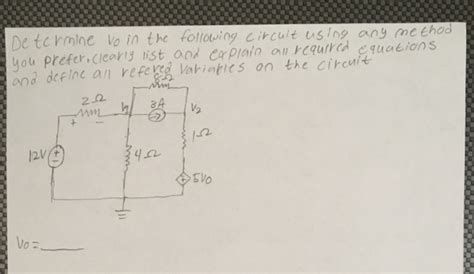 Determine vo in the following circuit using any method
you prefer, clearly list and explain all required equations
and define all refered variables on the circuit
8Ω
2Ω
3A
V2
+ -
1Ω
12V
+
-
4Ω
5Vo
Vo=